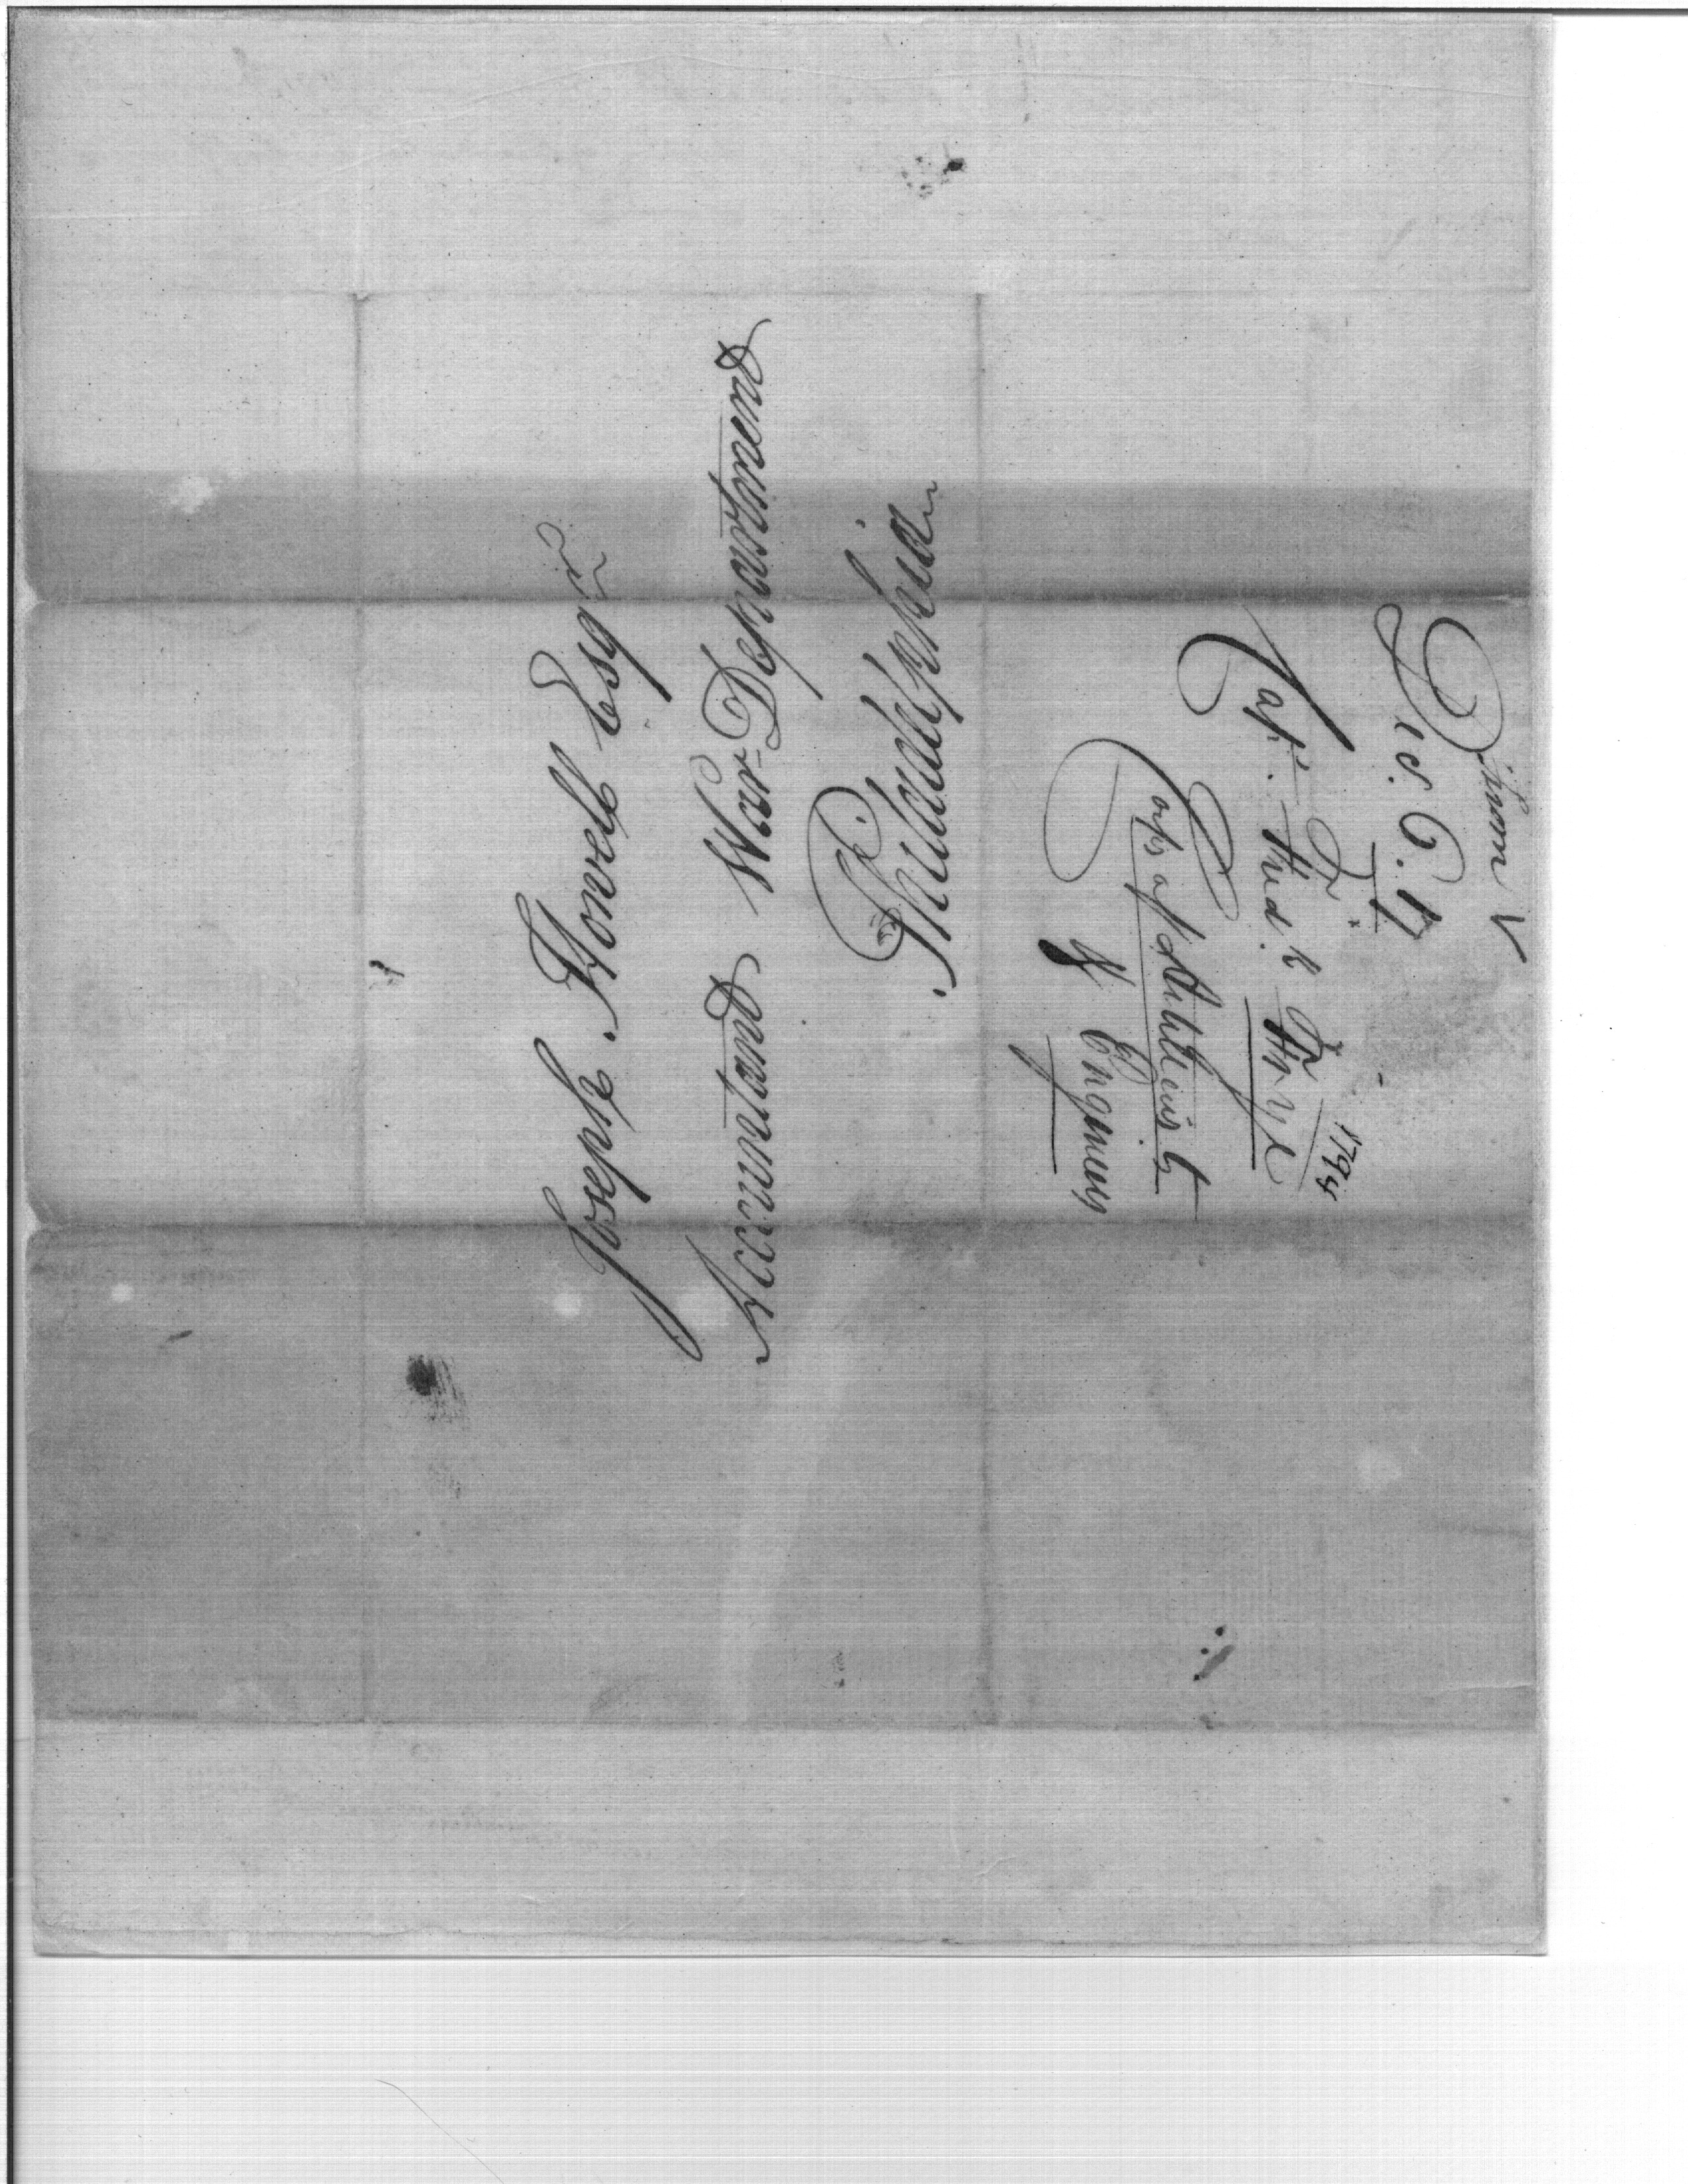 Joseph Howell Esqr
Accountant War-Department
Philadelphia
Dec. 6. 
1794
Capt. Fredk Frye
Corps of Artillerists
& Engineers